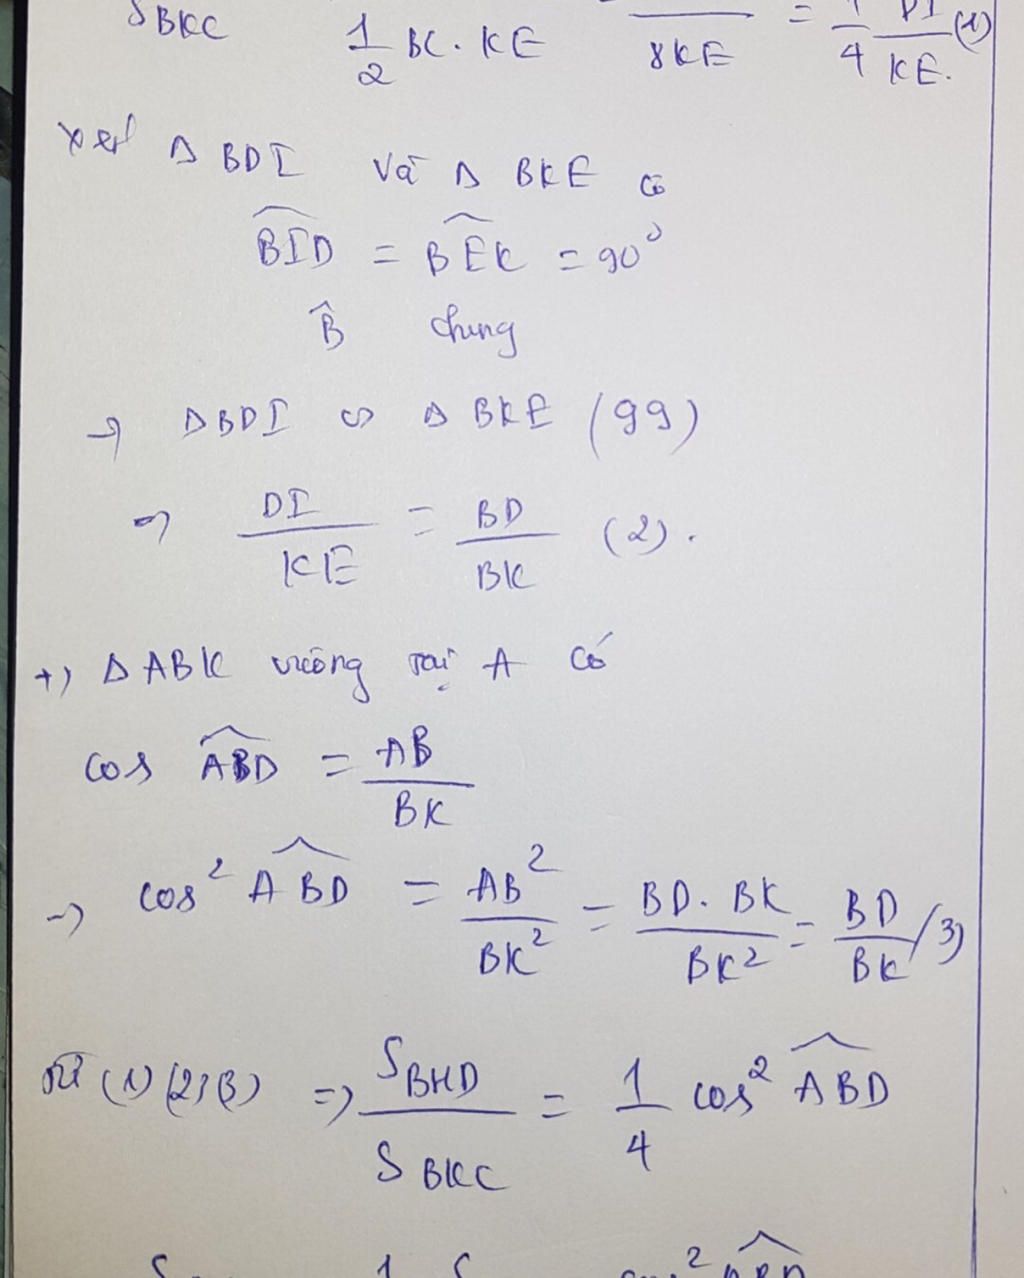 S BKC 1/2 BC . KE 8KE = 1/4 DI/KE. (1)
Xét Δ BDI và Δ BKE có
BID = BEK = 90°
B̂ chung
→ Δ BDI ∽ Δ BKE (gg)
⇒ DI/KE = BD/BK (2).
+) Δ ABK vuông tại A có
cos ABD = AB/BK
→ cos² ABD = AB²/BK² = BD. BK/BK² = BD/BK (3)
từ (1) (2) (3) => S BHD/S BKC = 1/4 cos² ABD